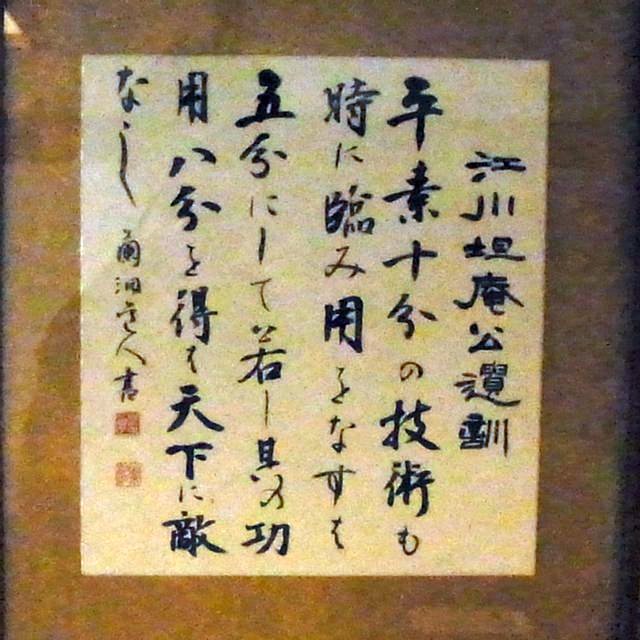 江川坦庵公遺訓
平素十分の技術も
時に臨み用をなすは
五分にして若し其の功
用八分を得は天下に敵
なし
道人書